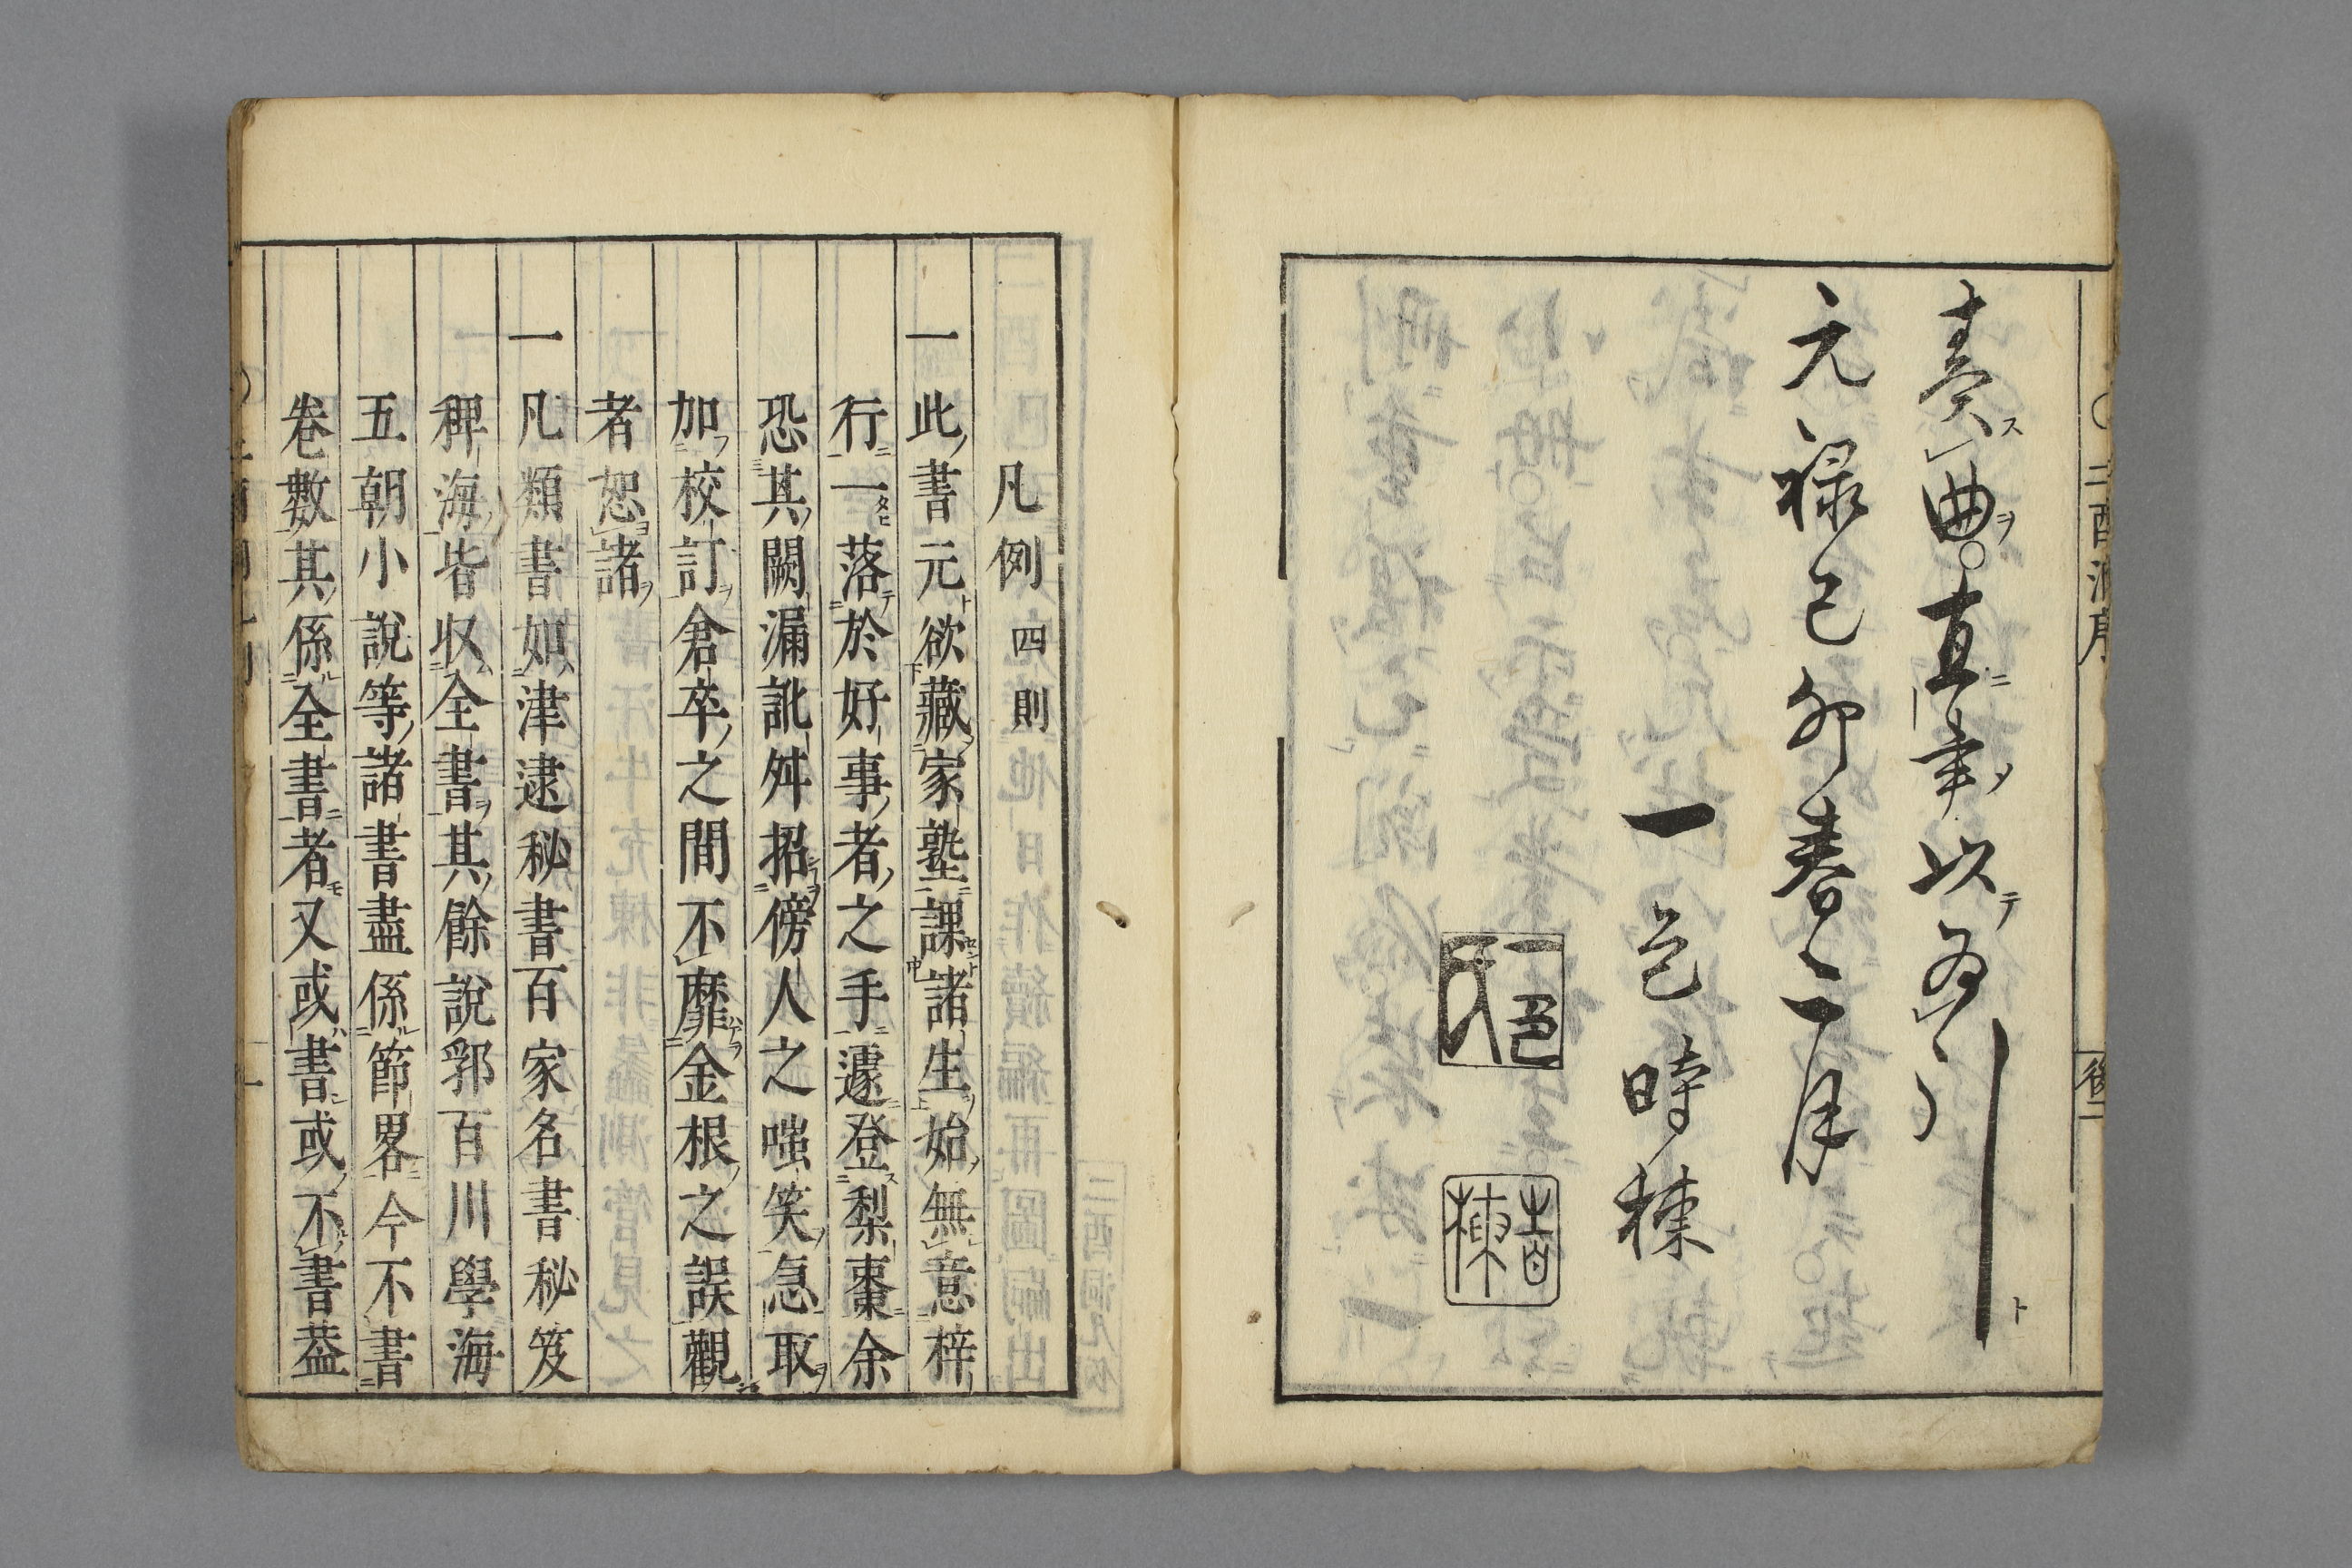 奏曲直筆以為引
元禄己卯春二月
一色時棟
一色氏
時棟
凡例四則
一此書元欲藏家塾課諸生始無意梓
行一落於好事者之手遽登梨棗余
恐其闕漏訛舛招傍人之嗤笑急取
加校訂倉卒之間不靡金根之誤觀
者恕諸
一凡類書如津逮秘書百家名書秘笈
稗海皆収全書其餘說郛百川學海
五朝小說等諸書盡係節畧今不書
卷數其係全書者又或書或不書葢